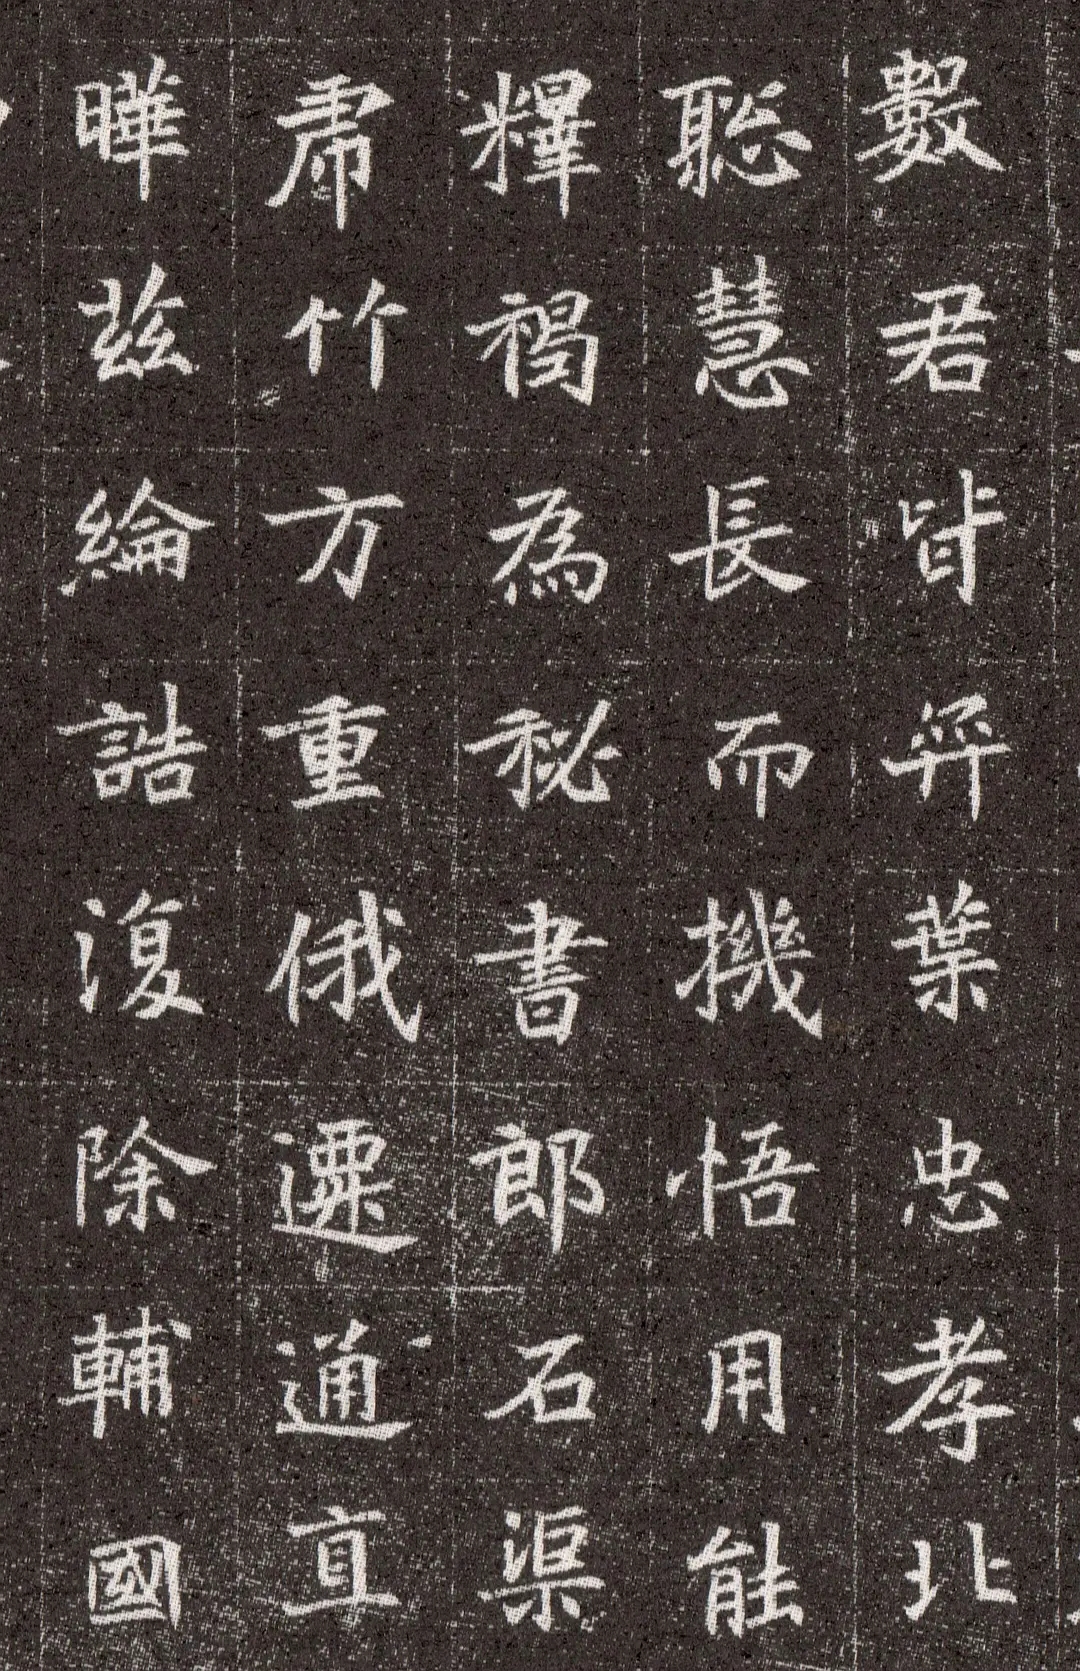 數君皆弈葉忠孝北
聰慧長而機悟用能
釋褐為秘書郎石渠
虎竹方重俄遷通直
曄茲綸誥復除輔國